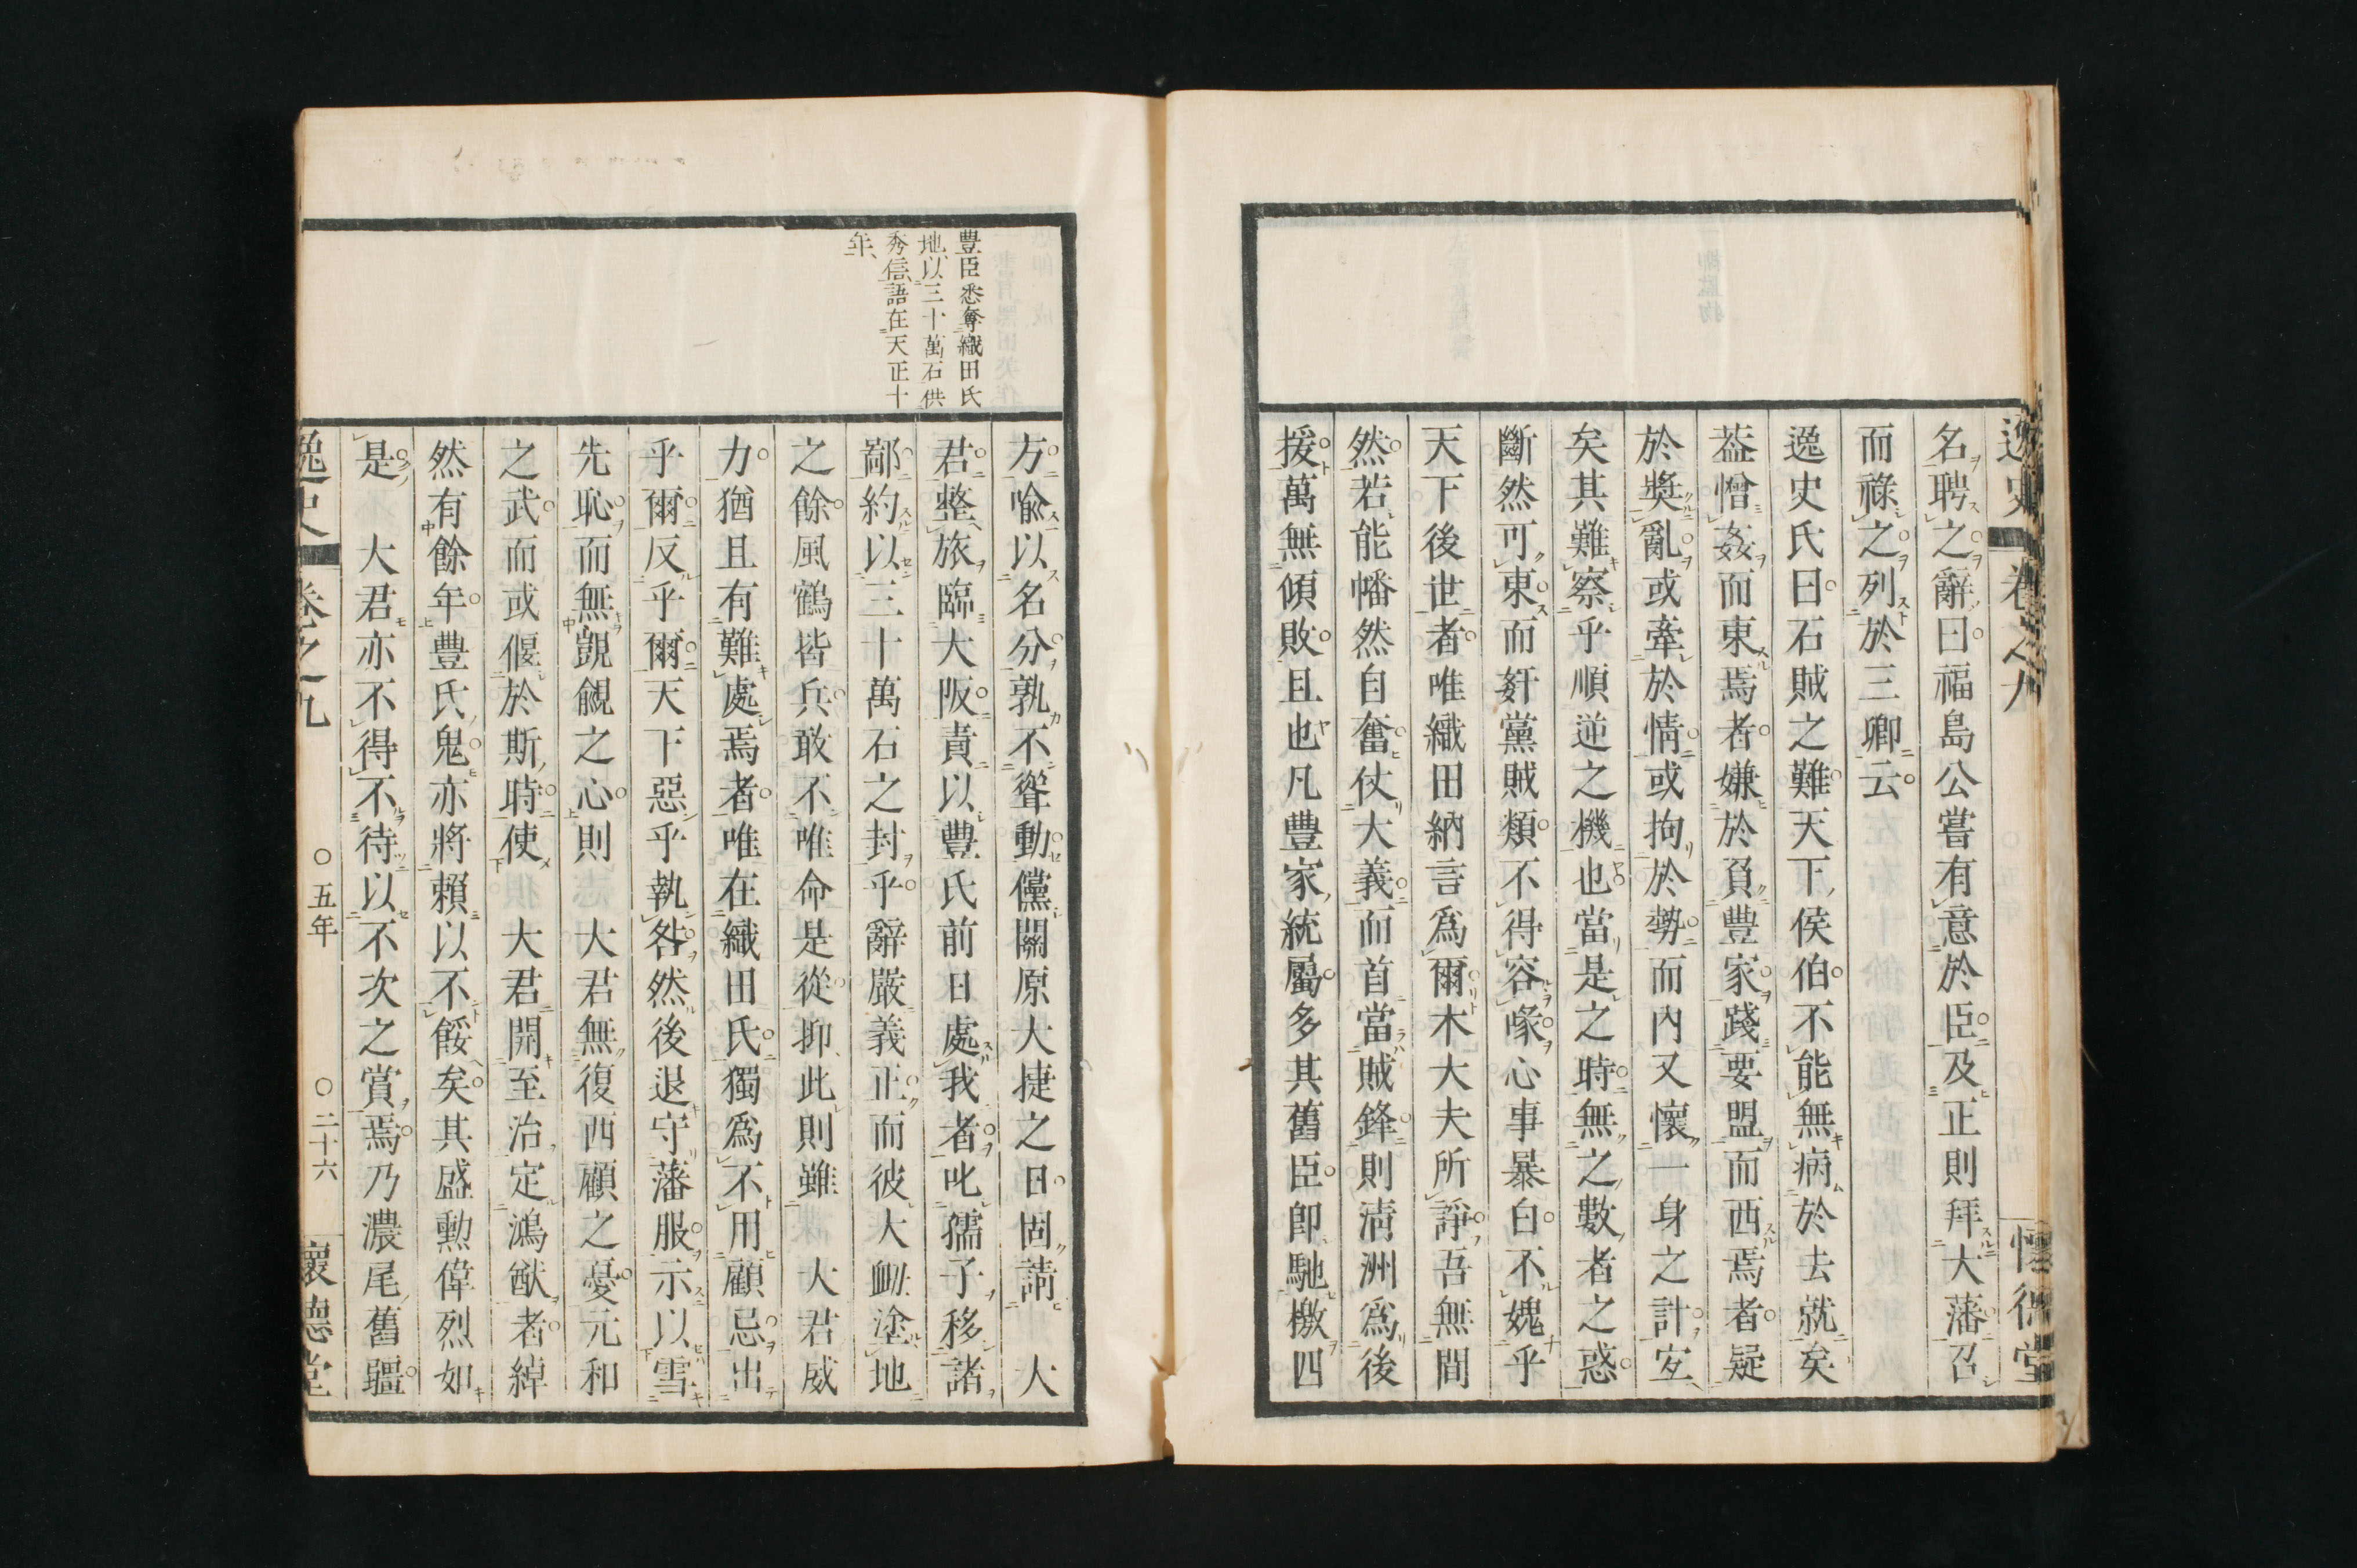 逸史 卷之九 懷德堂
名聘之辭曰福島公嘗有意於臣及正則拜大藩召
而祿之列於三卿云
逸史氏曰石賊之難天下侯伯不能無病於去就矣
葢憎姦而東焉者嫌於負豐家踐要盟而西焉者疑
於奬亂或牽於情或拘於勢而內又懷一身之計宐
矣其難察乎順逆之機也當是之時無之數者之惑
斷然可東而奸黨賊類不得容喙心事暴白不媿乎
天下後世者唯織田納言爲爾木大夫所諍吾無間
然若能幡然自奮仗大義而首當賊鋒則淸洲爲後
援萬無傾敗且也凡豐家統屬多其舊臣卽馳檄四
豐臣悉奪織田氏
地以三十萬石供
秀信語在天正十
年
方喩以名分孰不聳動儻關原大捷之日固請 大
君整旅臨大阪責以豐氏前日處我者叱孺子移諸
鄰約以三十萬石之封乎辭嚴義正而彼大衂塗地
之餘風鶴皆兵敢不唯命是從抑此則雖 大君威
力猶且有難處焉者唯在織田氏獨爲不用顧忌出
乎爾反乎爾天下惡乎執咎然後退守藩服示以雪
先恥而無覬覦之心則 大君無復西顧之憂元和
之武而或偃於斯時使 大君開至治定鴻猷者綽
然有餘年豐氏鬼亦將賴以不餒矣其盛勲偉烈如
是 大君亦不得不待以不次之賞焉乃濃尾舊疆
逸史 卷之九 ○五年 ○二十六 懷德堂